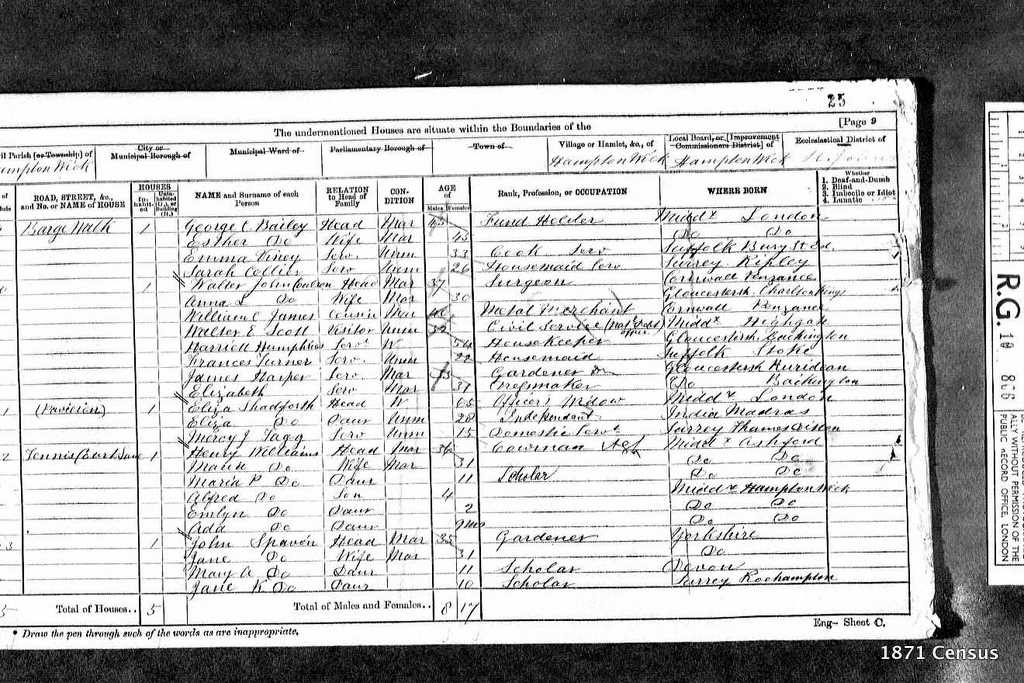 25
[Page 9
The undermentioned Houses are situate within the Boundaries of the
il Parish [or Township] of
City or Municipal Borough of
Municipal Ward of
Parliamentary Borough of
Town of
Village or Hamlet, &c., of
Local Board, or [Improvement Commissioners District] of
Ecclesiastical District of
ampton Wick
Hampton Wick
Hampton Wick
ROAD, STREET, &c., and No. or NAME of HOUSE
HOUSES
Inhabited
Uninhabited (U.), or Building (B.)
NAME and Surname of each Person
RELATION to Head of Family
CONDITION
AGE of
Males
Females
Rank, Profession, or OCCUPATION
WHERE BORN
Whether
1. Deaf-and-Dumb
2. Blind
3. Imbecile or Idiot
4. Lunatic
Barge Walk 1 George C Bailey Head Mar Fund Holder Middx London
Esther Do Wife Mar 45 Do Do
Emma Viney Serv. Unm 33 Cook Serv Suffolk Bury St Ed.
Sarah Collier Serv Unm 26 Housemaid Serv Surrey Ripley
1 Walter John Coulson Head Mar 37 Surgeon Cornwall Penzance
Anna L Do Wife Mar 30 Gloucestersh. Charlton Kings
William C James Cousin Mar Metal Merchant Cornwall Penzance
Walter E Scott Visitor Unm 32 Civil Service Middx Highgate
Harriett Humphries Serv. W. 54 Housekeeper Gloucestersh
Frances Turner Serv. Unm 22 Housemaid Suffolk Stoke
James Harper Serv. Mar Gardener Gloucestersh
Elizabeth Serv Mar 37 Dressmaker Do
1 (Pavilion) 1 Eliza Shadforth Head W. 65 Officer's Widow Middx London
Eliza Do Daur Unm 28 Independent India Madras
Mercy J Tagg Serv Unm 15 Domestic Servt Surrey Thames Ditton
2 Tennis Court Lane 1 Henry Williams Head Mar 36 Cowman Middx Ashford
Do Wife Mar 31 Do Do
Maria P Do Daur 11 Scholar Do Do
Alfred Do Son 4 Middx Hampton Wick
Emlyn Do Daur 2 Do Do
Ada Do Daur 9 mos Do Do
3 1 John Spaven Head Mar 35 Gardener Yorkshire
Jane Do Wife Mar 31 Do
Mary A Do Daur 11 Scholar Devon
Jane K Do Daur 10 Scholar Surrey Roehampton
5 Total of Houses.. 5 Total of Males and Females.. 8 17
* Draw the pen through such of the words as are inappropriate.
Eng- Sheet C.
R.G. 10
ALLY WITHOUT PERMISSION OF THE
PUBLIC RECORD OFFICE, LONDON
1871 Census